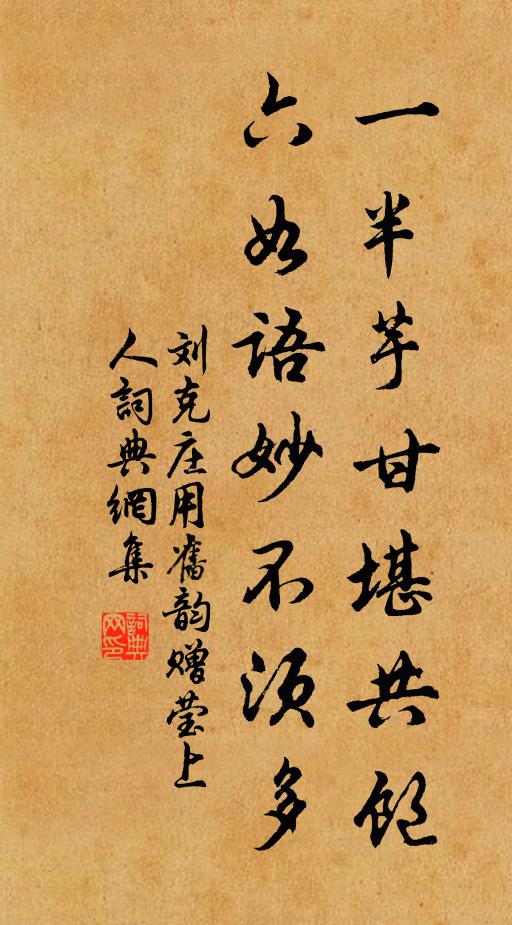 一半芋甘堪共飽
六如語妙不須多
刘克庄用舊韵赠莹上
人詞典網集
詞典
网印